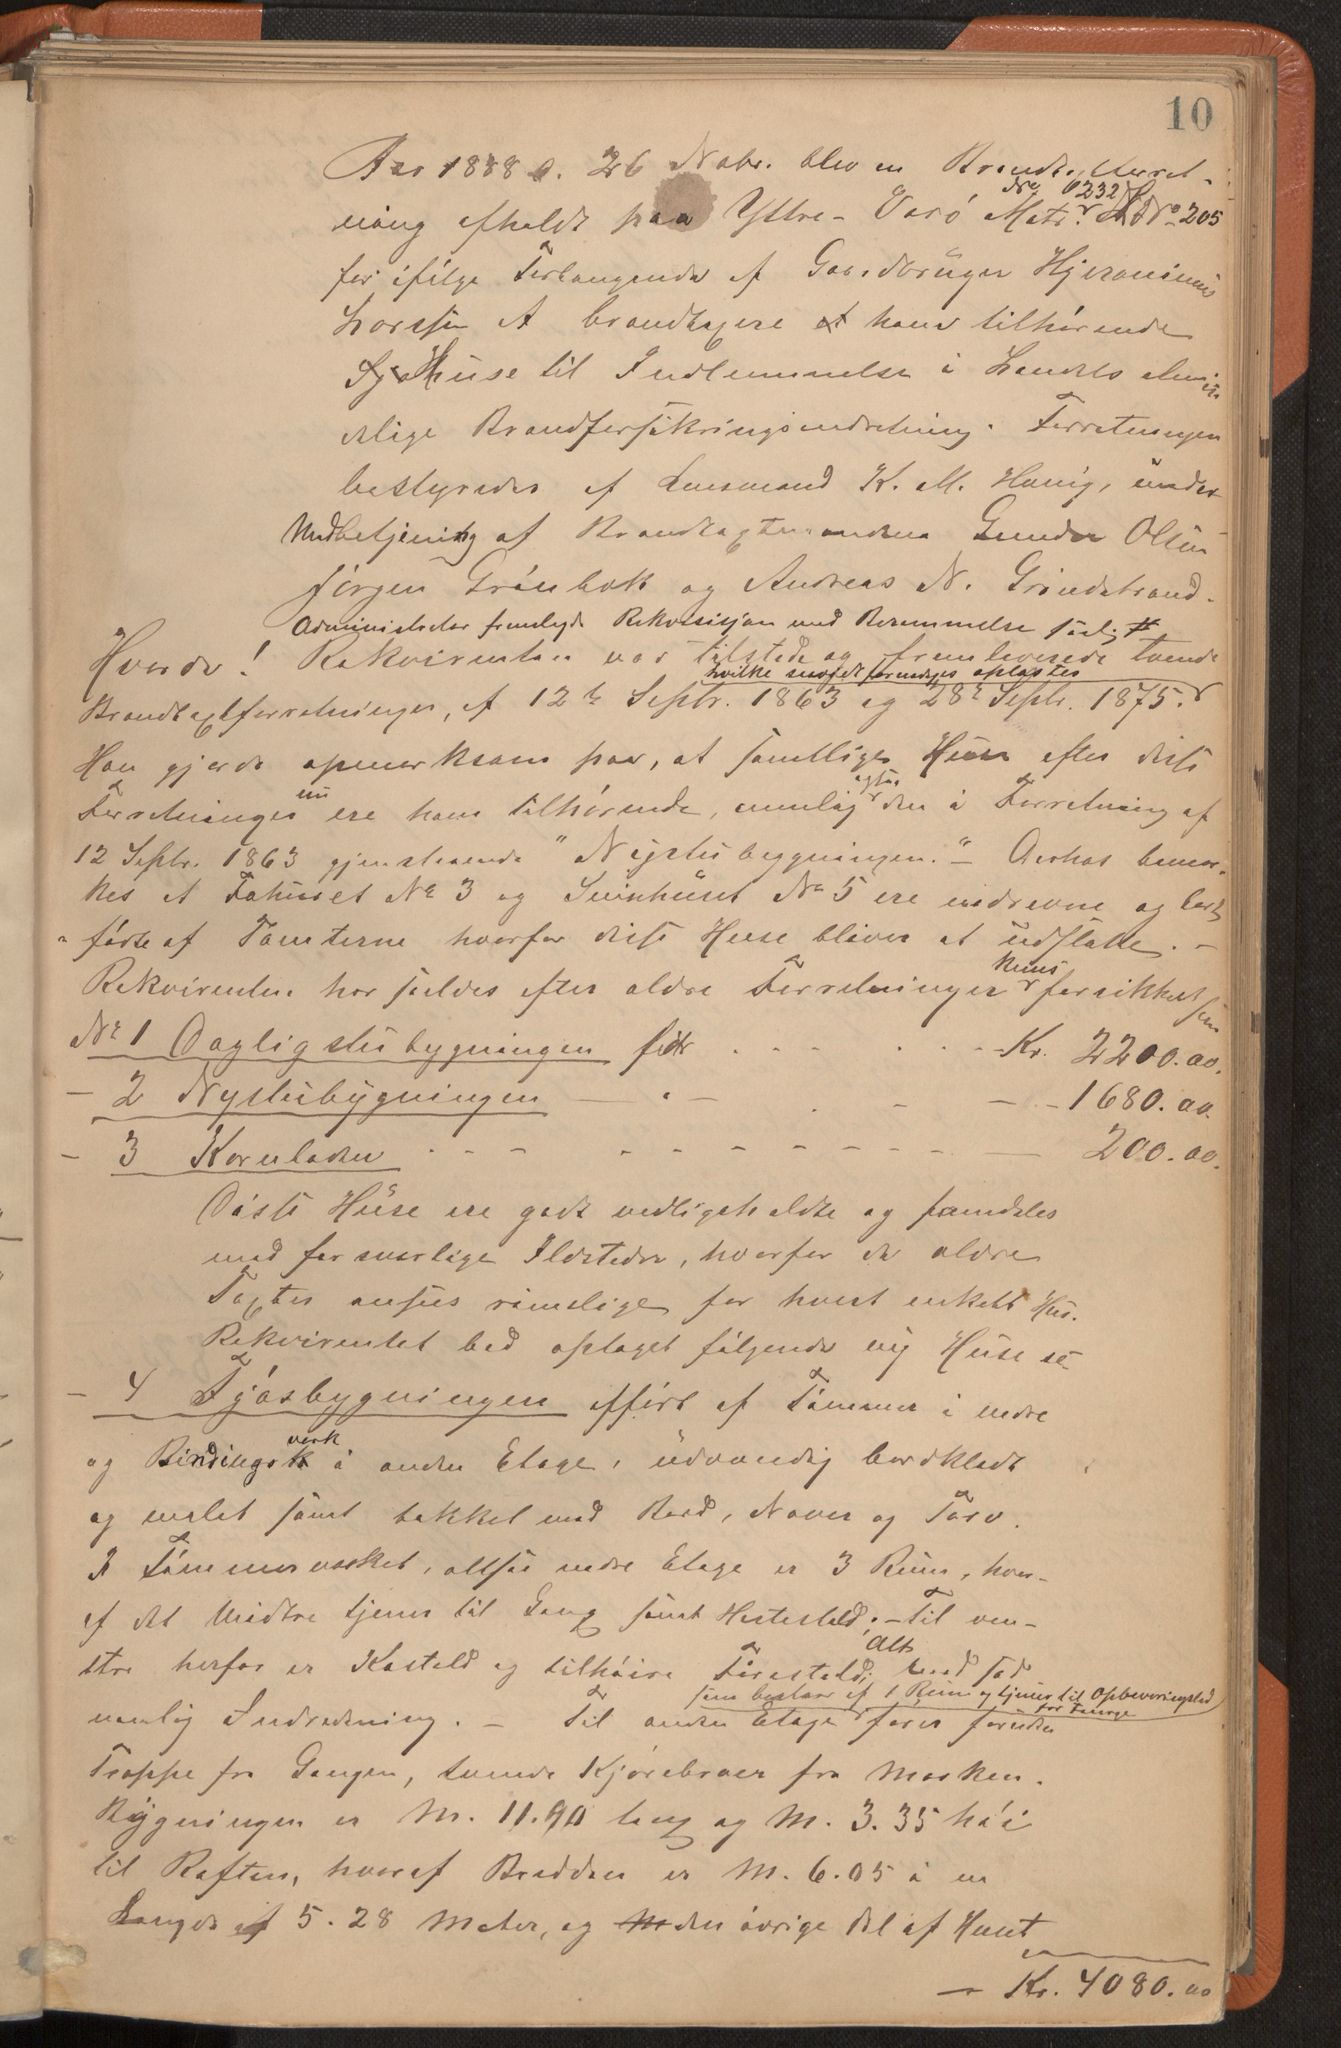 10
Aar 1888 d. 26 Novbr. blev en Brandtaxtforret-
ning afholdt paa Yttre-Varö Matr. No 232 L No 205
for ifölge Forlangende af Gaardbruger Hjeronimus
Larssen at brandtaxere et ham tilhörende
Huse til Indlemmelse i Landets almin-
delige Brandforsikringsindretning. Forretningen
bestyredes af Lensmand K. M. Havig, under
Medbetjening af Brandtaxtmændene Gunder Olsen
Jörgen Grönbæk og Andreas N. Grindstrand.
Administrator fremlagde Rekvisisjon med Berammelse
Hvorda! Rekvirenten var tilstede og fremleverede tvende
hvilke saavidt fornödiges oplæstes
Brandtaxtforretninger, af 12te Septr. 1863 og 28de Septr. 1875.
Han gjorde opmerksom paa, at samtlige Huse efter disse
Forretninger nu ere ham tilhörende, nemlig ogsaa den i Forretning af
12 Septr. 1863 gjenstaaende "Nystubygningen." - Derhos bemær-
kes at Fæhuset No 3 og Svinhuset No 5 ere nedrevne og bort-
förte af Tomterne hvorfor disse Huse bliver at udslette. -
Rekvirenten har saaledes efter ældre Forretninger Huus forsikket som
No 1 Dagligstubygningen for . . . . . . Kr. 2200.00.
- 2 Nystubygningen - " - . - - - 1680.00.
- 3 Kornladen - - - - - - - - - 200.00.
Disse Huse ere godt vedligeholdte og fremdeles
med forsvarlige Ildsteder, hvorfor de ældre
Taxter ansees rimelige for hvert enkelt Hus.
Rekvirentet bad optaget fölgende ny Huse se
- 4 Fjösbygningen opfört af Tömmer i nedre
og Bindingsverk i anden Etage, udvendig bordklædt
og malet samt tækket med Bord, Næver og Torv.
I Tömmerverket, altsaa nedre Etage er 3 Rum, hvor-
af det Midtre tjener til Gang samt Hestestald. - Til ven-
stre herfor er Kostald og tilhöire Faarestald; Alt med sæd-
vanlig Indredning. - Til anden Etage som bestaar af 1 Rum og tjener til Opbevaringsted for Fourage förer foruden
Trappe fra Gangen, tvende Kjörebroer fra Marken.
Bygningen er M. 11.90 lang og M. 3.35 höi
til Raften, hvoraf Bredden er M. 6.05 i en
Længde af 5.28 Meter, og den övrige Del af Huset
- Kr. 4080.00